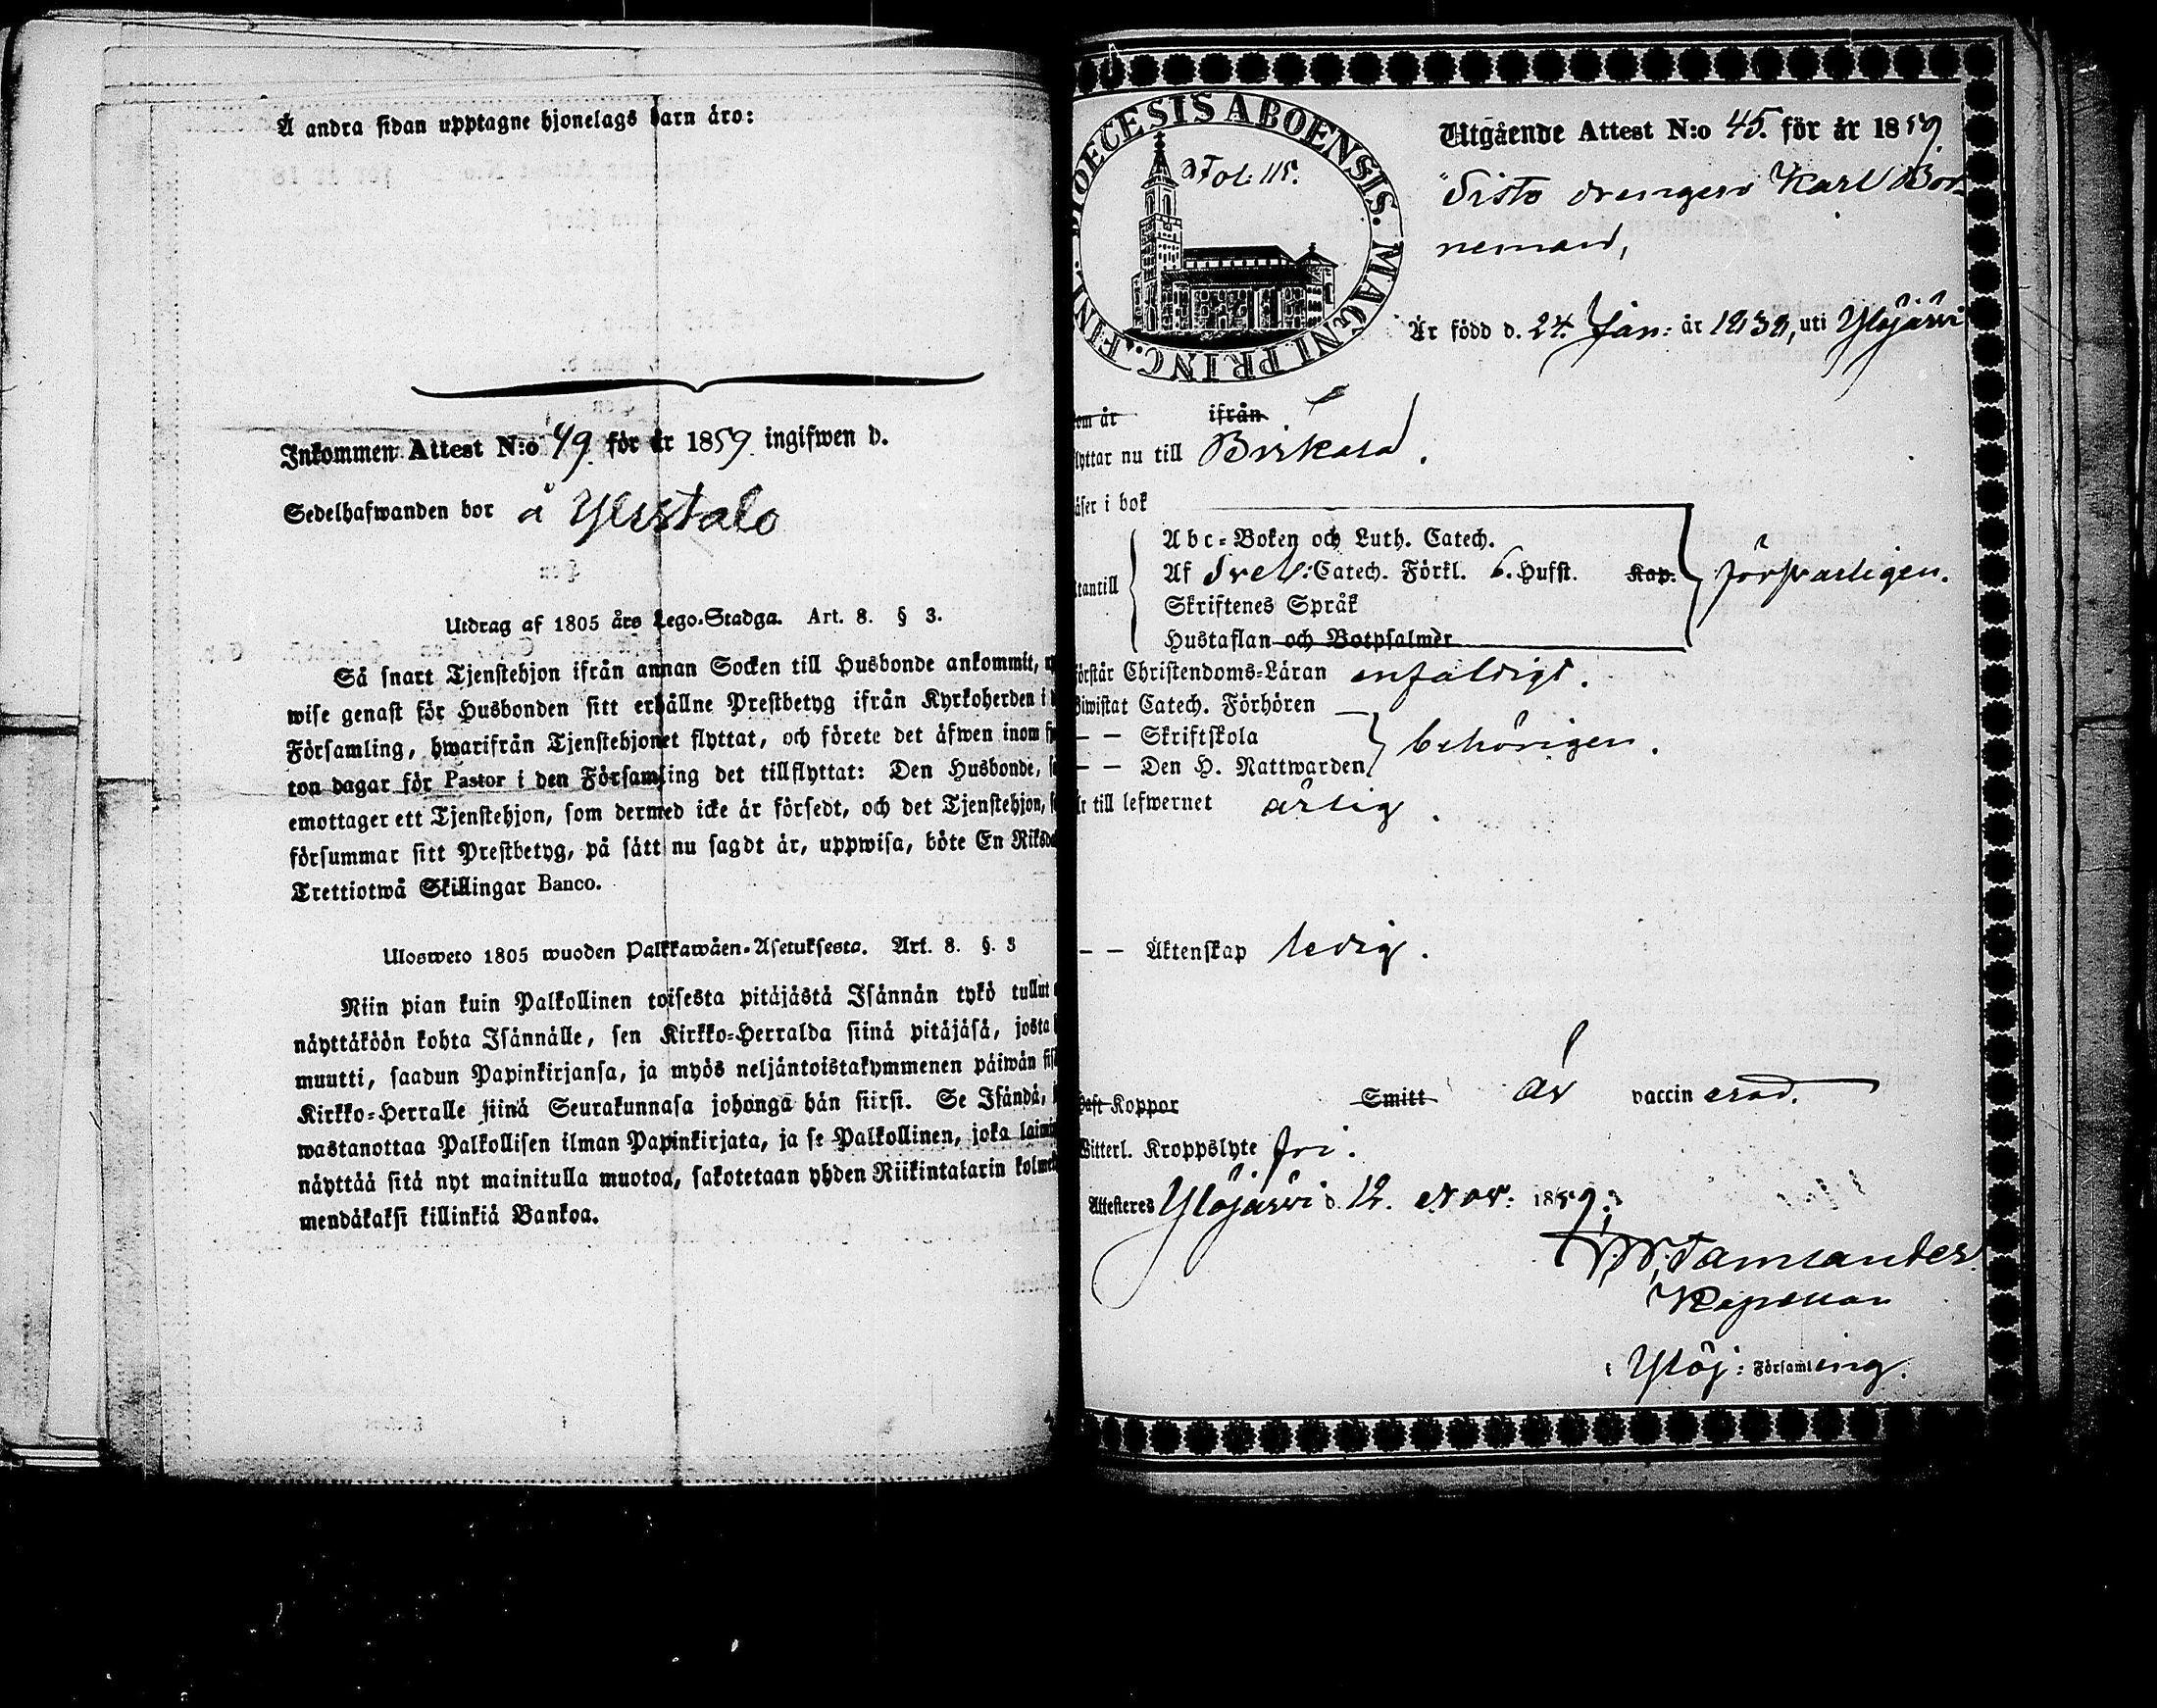 Å andra sidan upptagne hjonelags barn äro:
Inkommen Attest N:o 49. för år 1859. ingifwen d.
Sedelhafwanden bor å Ylistalo
Utdrag af 1805 års Lego-Stadga. Art. 8. § 3.
Så snart Tjenstehjon ifrån annan Socken till Husbonde ankommit,
wise genast för Husbonden sitt erhållne Prestbetyg ifrån Kyrkoherden i
Församling, hwarifrån Tjenstehjonet flyttat, och förete det äfwen inom
ton dagar för Pastor i den Församling det tillflyttat: Den Husbonde,
emottager ett Tjenstehjon, som dermed icke är försedt, och det Tjenstehjon,
försummar sitt Prestbetyg, på sätt nu sagdt är, uppwisa, böte En Riksda
Trettiotwå Skillingar Banco.
Ulosweto 1805 wuoden Palkkawäen-Asetuksesta. Art. 8. §. 3
Niin pian kuin Palkollinen toisesta pitäjästä Isännän tykö tullut
näyttäköön kohta Isännälle, sen Kirkko-Herralda siinä pitäjäsä, josta
muutti, saadun Papinkirjansa, ja myös neljäntoistakymmenen päiwän sis
Kirkko-Herralle siinä Seurakunnasa johonga hän siirsi. Se Isändä,
wastanottaa Palkollisen ilman Papinkirjata, ja se Palkollinen, joka laimin
näyttää sitä nyt mainitulla muotoa, sakotetaan yhden Riikintalarin kolme
mendäkaksi killinkiä Bankoa.
DIOECESIS ABOENSIS. MAGNI PRINC. FINL.
Fol. 115.
Utgående Attest N:o 45. för år 1859
Sisto drengen Karl Bör-
neman,
Är född d. 24. Jan: är 1838, uti Ylöjärwi
om är ifrån
lyttar nu till Birkala.
äser i bok
Abc-Boken och Luth. Catech.
Af Sveb: Catech. Förkl. 6. Hufst. Kap.
tantill
Skriftenes Språk
Hustaflan och Botpsalmer
försvarligen.
örstår Christendoms-Läran enfaldigt.
iwistat Catech. Förhören
— — Skriftskola
— — Den H. Nattwarden
behörigen.
r till lefwernet ärlig.
— — Äktenskap ledig.
haft Koppor Smitt är vaccinerad.
Witterl. Kroppslyte fri.
Attesteres Ylöjärwi d. 12. Nov: 1859:
Tamlander.
Kapellan
i Ylöj: Församling.